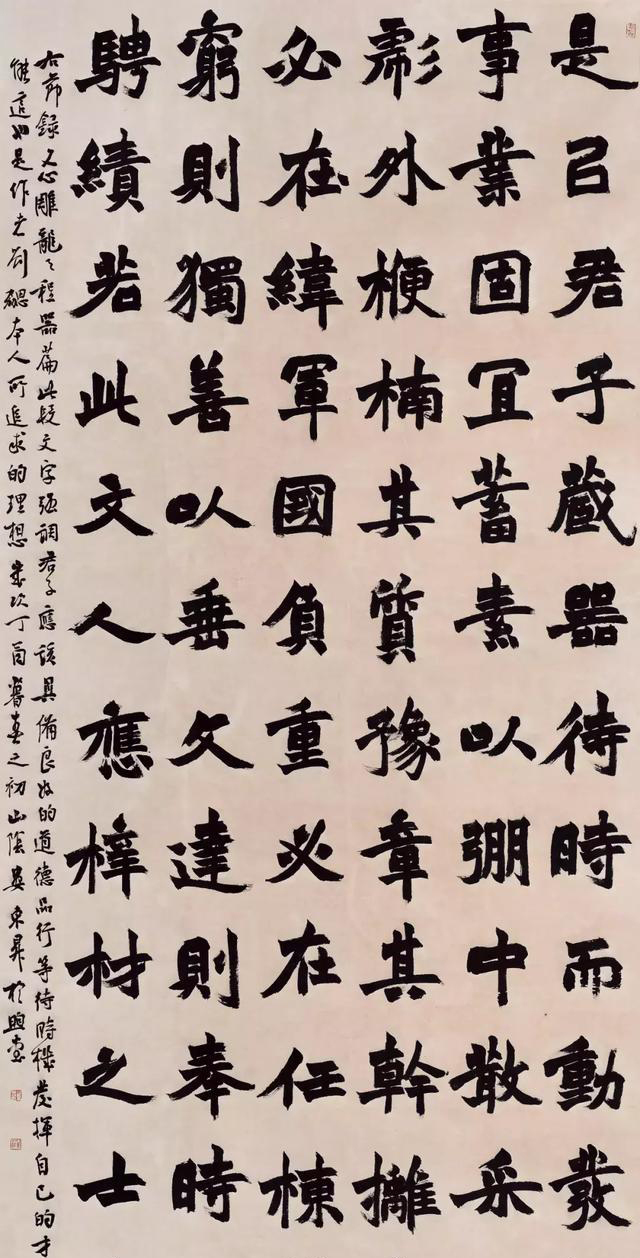 是㠯君子藏器待時而動發
事業固宜蓄素以弸中散采
彪外楩楠其質豫章其幹攡
必在緯軍國負重必在任棟
窮則獨善以垂文達則奉時
騁績若此文人應梓材之士
右節錄文心雕龍之程器篇此段文字强調君子應該具備良好的道德品行等待時機發揮自己的才
能這也是作者劉勰本人所追求的理想歲次丁酉暮春之初山陰吳東昇於